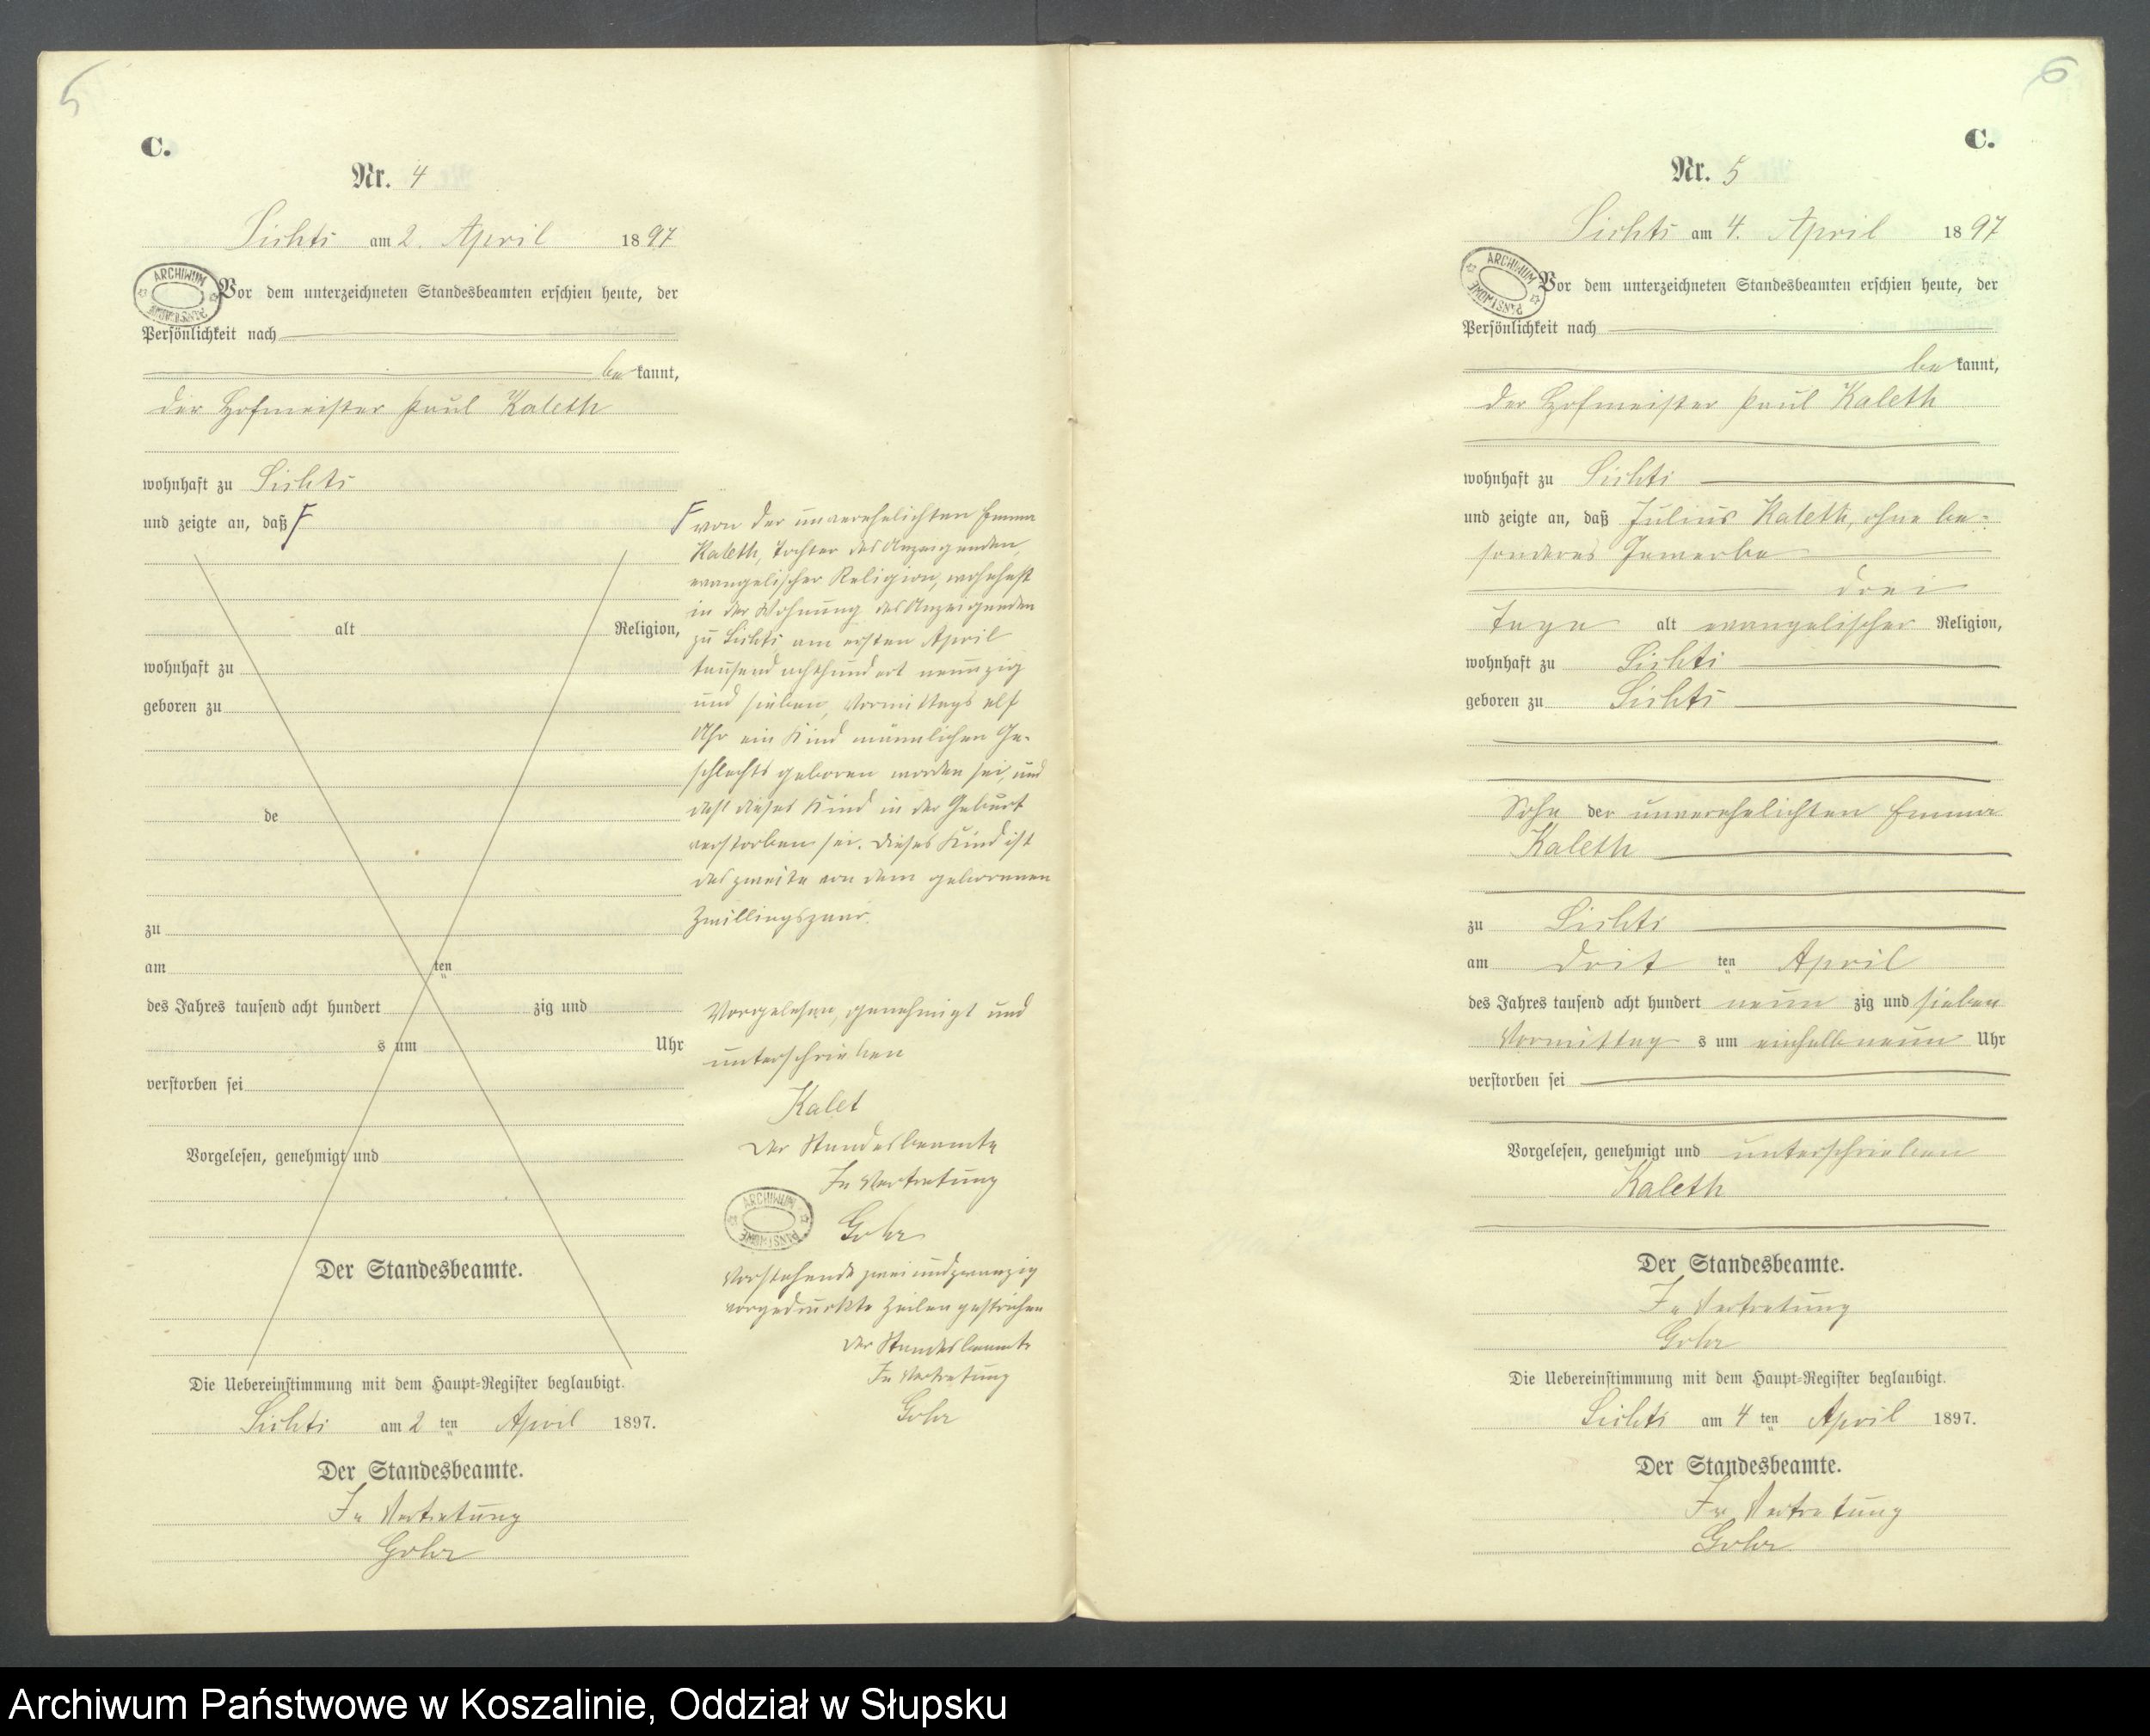 5
C.
Nr. 4
Lichti am 2. April 1897
ARCHIWUM PAŃSTWOWE
Vor dem unterzeichneten Standesbeamten erschien heute, der
Persönlichkeit nach
be kannt,
der Hofmeister Paul Kaleth
wohnhaft zu
und zeigte an, daß F
alt Religion,
wohnhaft zu
geboren zu
de
zu
am ten
des Jahres tausend acht hundert zig und
s um Uhr
verstorben sei
Vorgelesen, genehmigt und
Der Standesbeamte.
Die Uebereinstimmung mit dem Haupt-Register beglaubigt.
am 2 ten April 1897.
Der Standesbeamte.
In Vertretung
Gohr
F von der unverehelichten Emma
Kaleth, Tochter des Anzeigenden,
evangelischer Religion, wohnhaft
in der Wohnung des Anzeigenden
zu am ersten April
tausend achthundert neunzig
und sieben, Vormittags elf
Uhr ein Kind männlichen Ge-
schlechts geboren worden sei, und
daß dieses Kind in der Geburt
verstorben sei. Dieses Kind ist
das zweite von dem geborenen
Zwillingspaar.
Vorgelesen, genehmigt und
unterschrieben
Kalet
Der Standesbeamte
In Vertretung
ARCHIWUM PAŃSTWOWE
Gohr
Vorstehende zwei und zwanzig
vorgedruckte Zeilen gestrichen
Der Standesbeamte
In Vertretung
Gohr
6
C.
Nr. 5
am 4. April 1897
ARCHIWUM PAŃSTWOWE
Vor dem unterzeichneten Standesbeamten erschien heute, der
Persönlichkeit nach
be kannt,
der Hofmeister Paul Kaleth
wohnhaft zu
und zeigte an, daß Julius Kaleth, ohne be-
sonderes Gewerbe
drei
Tage alt evangelischer Religion,
wohnhaft zu
geboren zu
Sohn der unverehelichten Emma
Kaleth
zu
am dritten April
des Jahres tausend acht hundert neun zig und sieben
Vormittag s um einhalb neun Uhr
verstorben sei
Vorgelesen, genehmigt und unterschrieben
Kaleth
Der Standesbeamte.
In Vertretung
Gohr
Die Uebereinstimmung mit dem Haupt-Register beglaubigt.
am 4 ten April 1897.
Der Standesbeamte.
In Vertretung
Gohr
Archiwum Państwowe w Koszalinie, Oddział w Słupsku